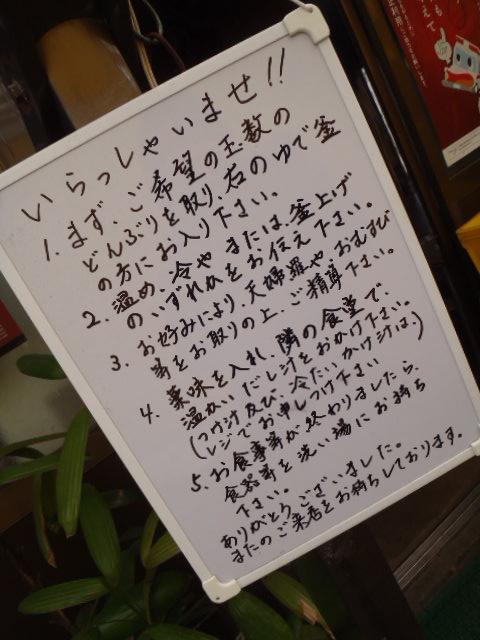 いらっしゃいませ!!
1. まず、ご希望の玉数の
どんぶりを取り、右のゆで釜
の方にお入り下さい。
2. 温め、冷や または、釜上げ
のいずれかをお伝え下さい。
3. お好みにより、天婦羅やおむすび
等をお取りの上、ご精算下さい。
4. 薬味を入れ、隣の食堂で、
温かいだし汁をおかけ下さい。
(つけ汁及び、冷たいかけ汁は、)
レジでお申しつけ下さい
5. お食事等が終わりましたら、
食器等を洗い場にお持ち
下さい。
ありがとうございました。
またのご来店をお待ちしております。